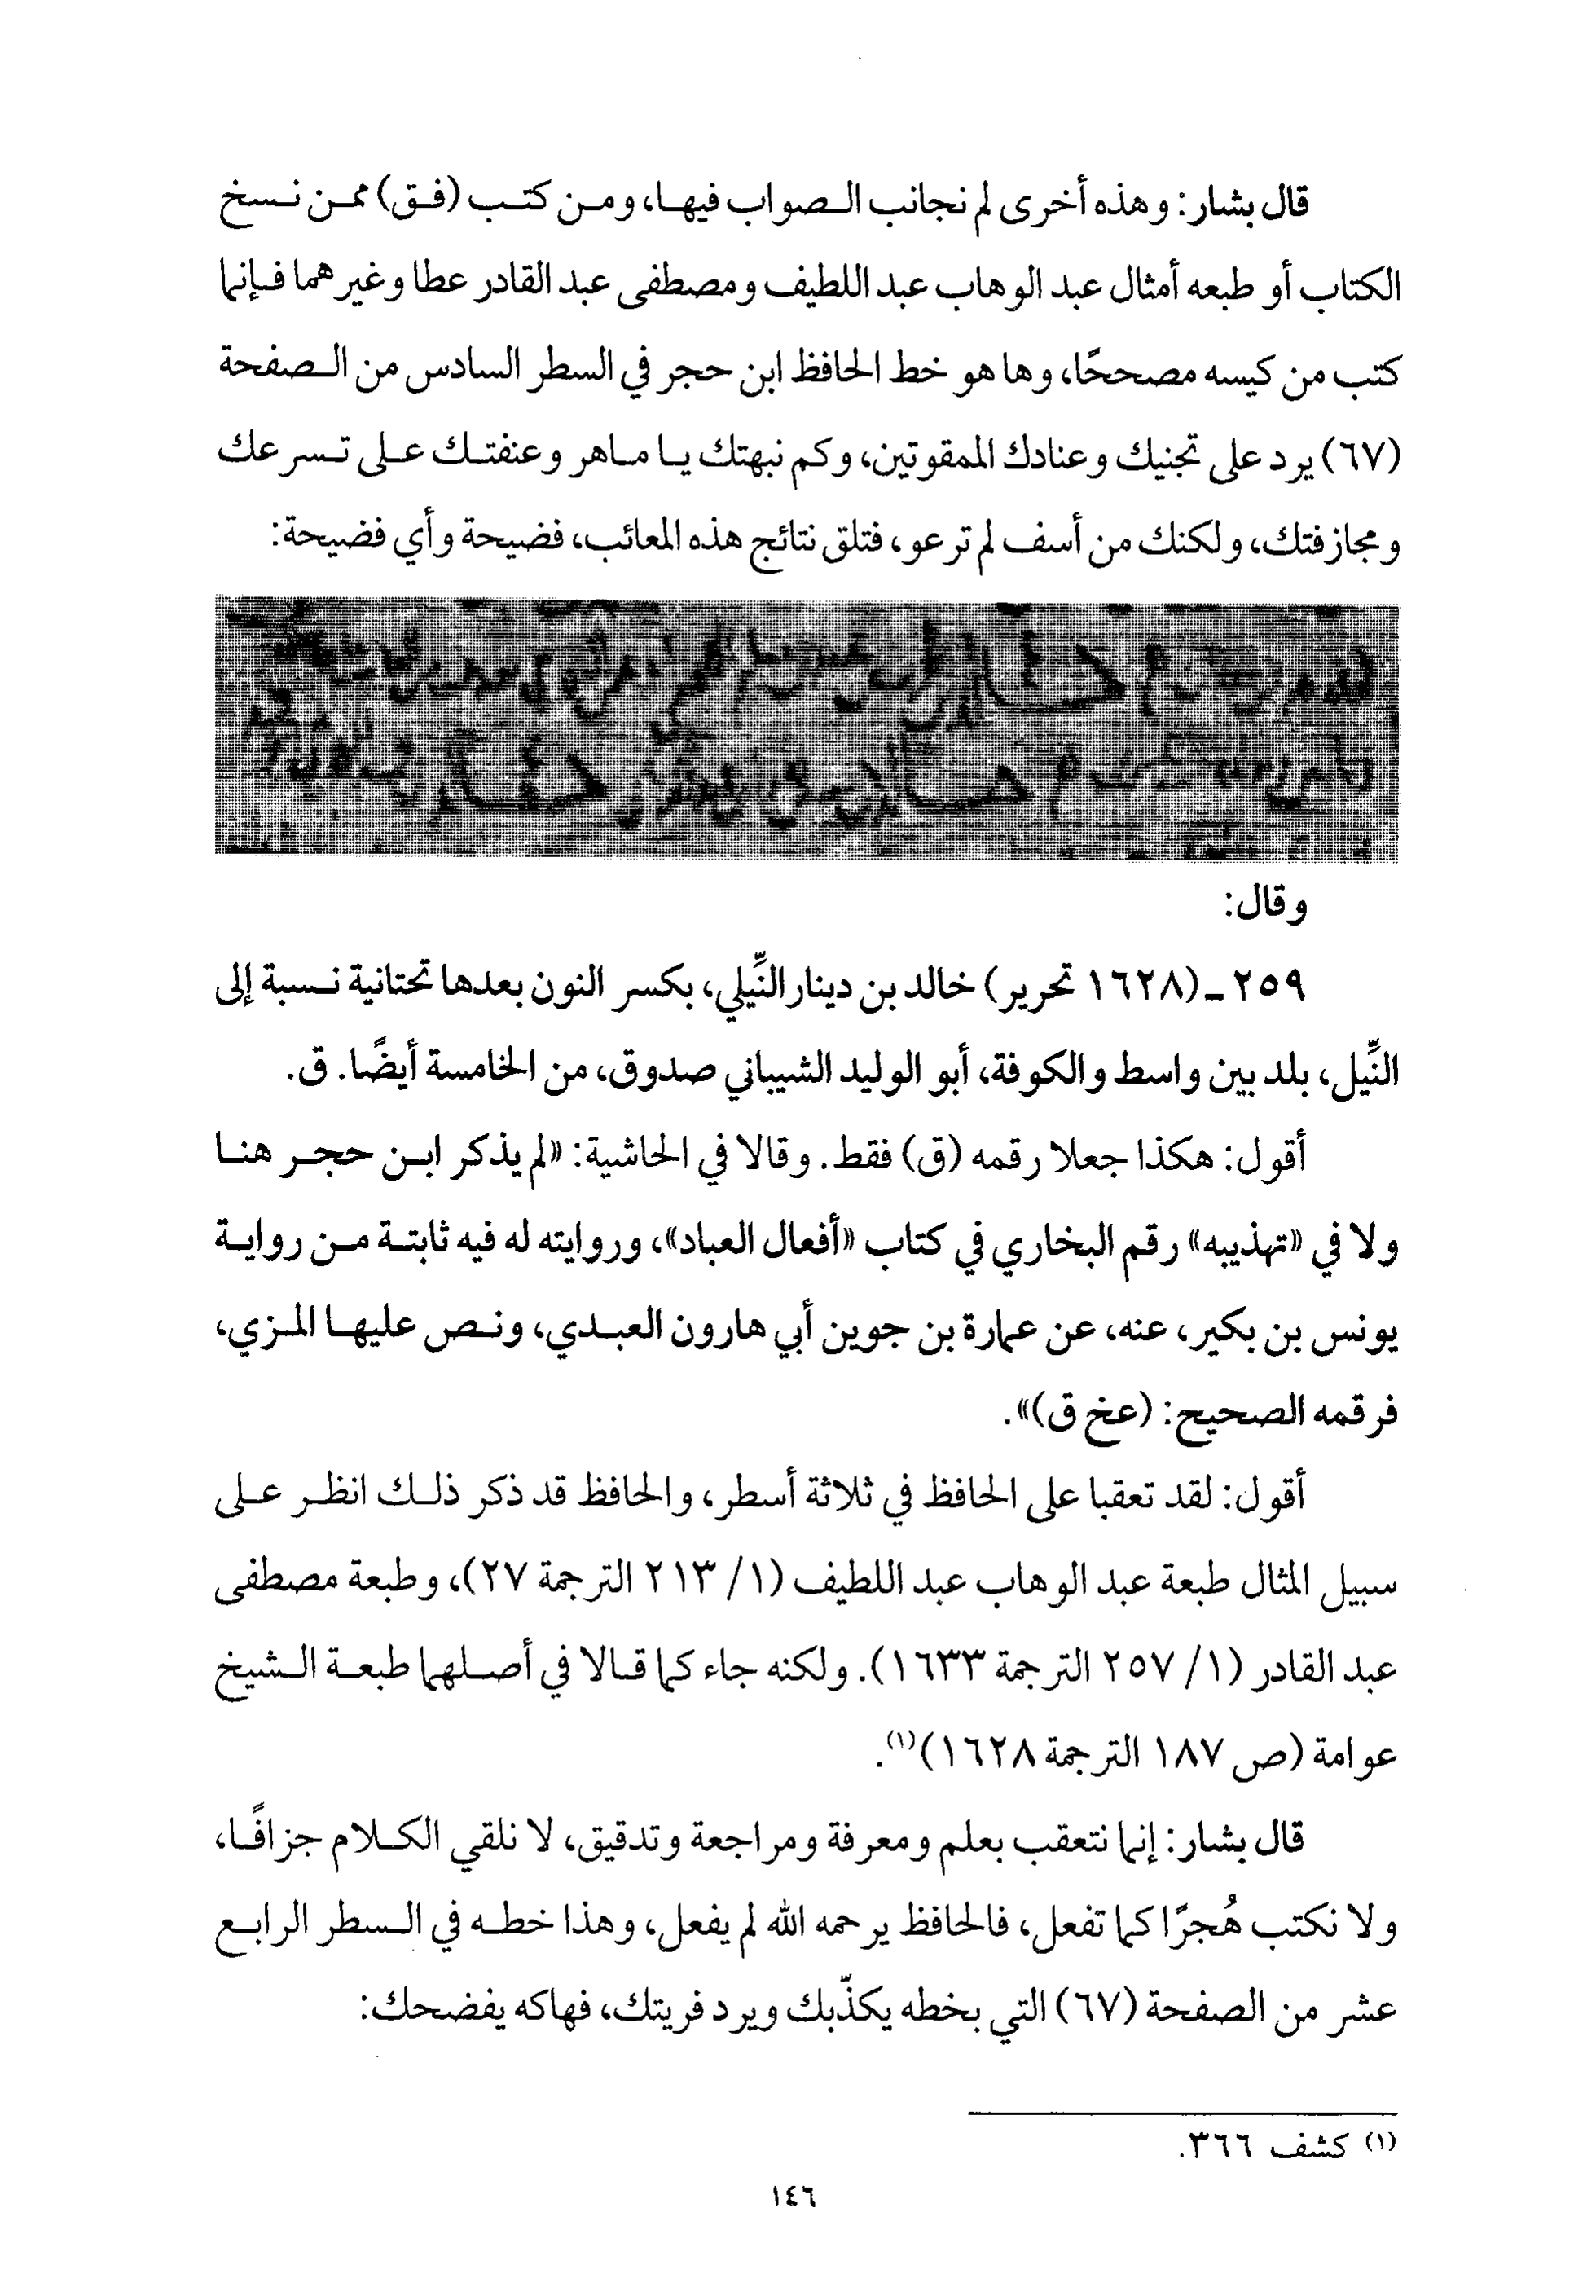 قال بشار: وهذه أخرى لم نجانب الصواب فيها، ومن كتب (فق) ممن نسخ
الكتاب أو طبعه أمثال عبد الوهاب عبد اللطيف ومصطفى عبد القادر عطا وغيرهما فإنما
كتب من كيسه مصححًا، وها هو خط الحافظ ابن حجر في السطر السادس من الصفحة
(٦٧) يرد على تجنيك وعنادك الممقوتين، وكم نبهتك يا ماهر وعنفتك على تسرعك
ومجازفتك، ولكنك من أسف لم ترعو، فتلق نتائج هذه المعائب، فضيحة وأي فضيحة:
وقال:
٢٥٩ - (١٦٢٨ تحرير) خالد بن دينار النِّيلي، بكسر النون بعدها تحتانية نسبة إلى
النِّيل، بلد بين واسط والكوفة، أبو الوليد الشيباني صدوق، من الخامسة أيضًا. ق.
أقول: هكذا جعلا رقمه (ق) فقط. وقالا في الحاشية: «لم يذكر ابن حجر هنا
ولا في «تهذيبه» رقم البخاري في كتاب «أفعال العباد»، وروايته له فيه ثابتة من رواية
يونس بن بكير، عنه، عن عمارة بن جوين أبي هارون العبدي، ونص عليها المزي،
فرقمه الصحيح: (عخ ق)».
أقول: لقد تعقبا على الحافظ في ثلاثة أسطر، والحافظ قد ذكر ذلك انظر على
سبيل المثال طبعة عبد الوهاب عبد اللطيف (١/ ٢١٣ الترجمة ٢٧)، وطبعة مصطفى
عبد القادر (١/ ٢٥٧ الترجمة ١٦٣٣). ولكنه جاء كما قالا في أصلهما طبعة الشيخ
عوامة (ص ١٨٧ الترجمة ١٦٢٨)(١).
قال بشار: إنما نتعقب بعلم ومعرفة ومراجعة وتدقيق، لا نلقي الكلام جزافًا،
ولا نكتب هُجرًا كما تفعل، فالحافظ يرحمه الله لم يفعل، وهذا خطه في السطر الرابع
عشر من الصفحة (٦٧) التي بخطه يكذّبك ويرد فريتك، فهاكه يفضحك:
(١) كشف ٣٦٦.
١٤٦